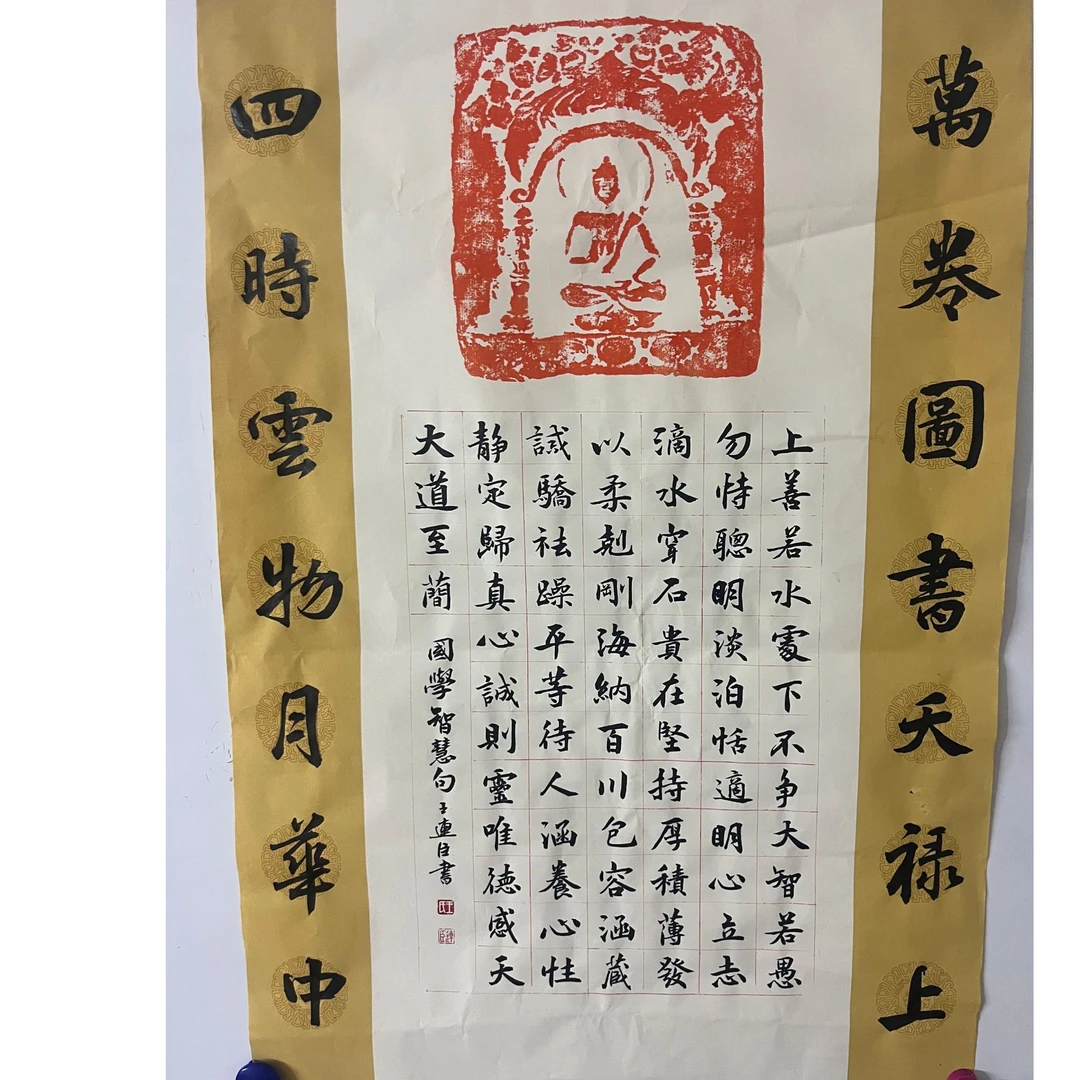 萬卷圖書天禄上
上善若水處下不争大智若愚
勿恃聰明淡泊恬適明心立志
滴水穿石貴在堅持厚積薄發
以柔剋剛海納百川包容涵蔵
誡驕祛躁平等待人涵養心性
静定歸真心誠則靈唯德感天
大道至蕳
國學智慧句王連臣書
四時雲物月華中